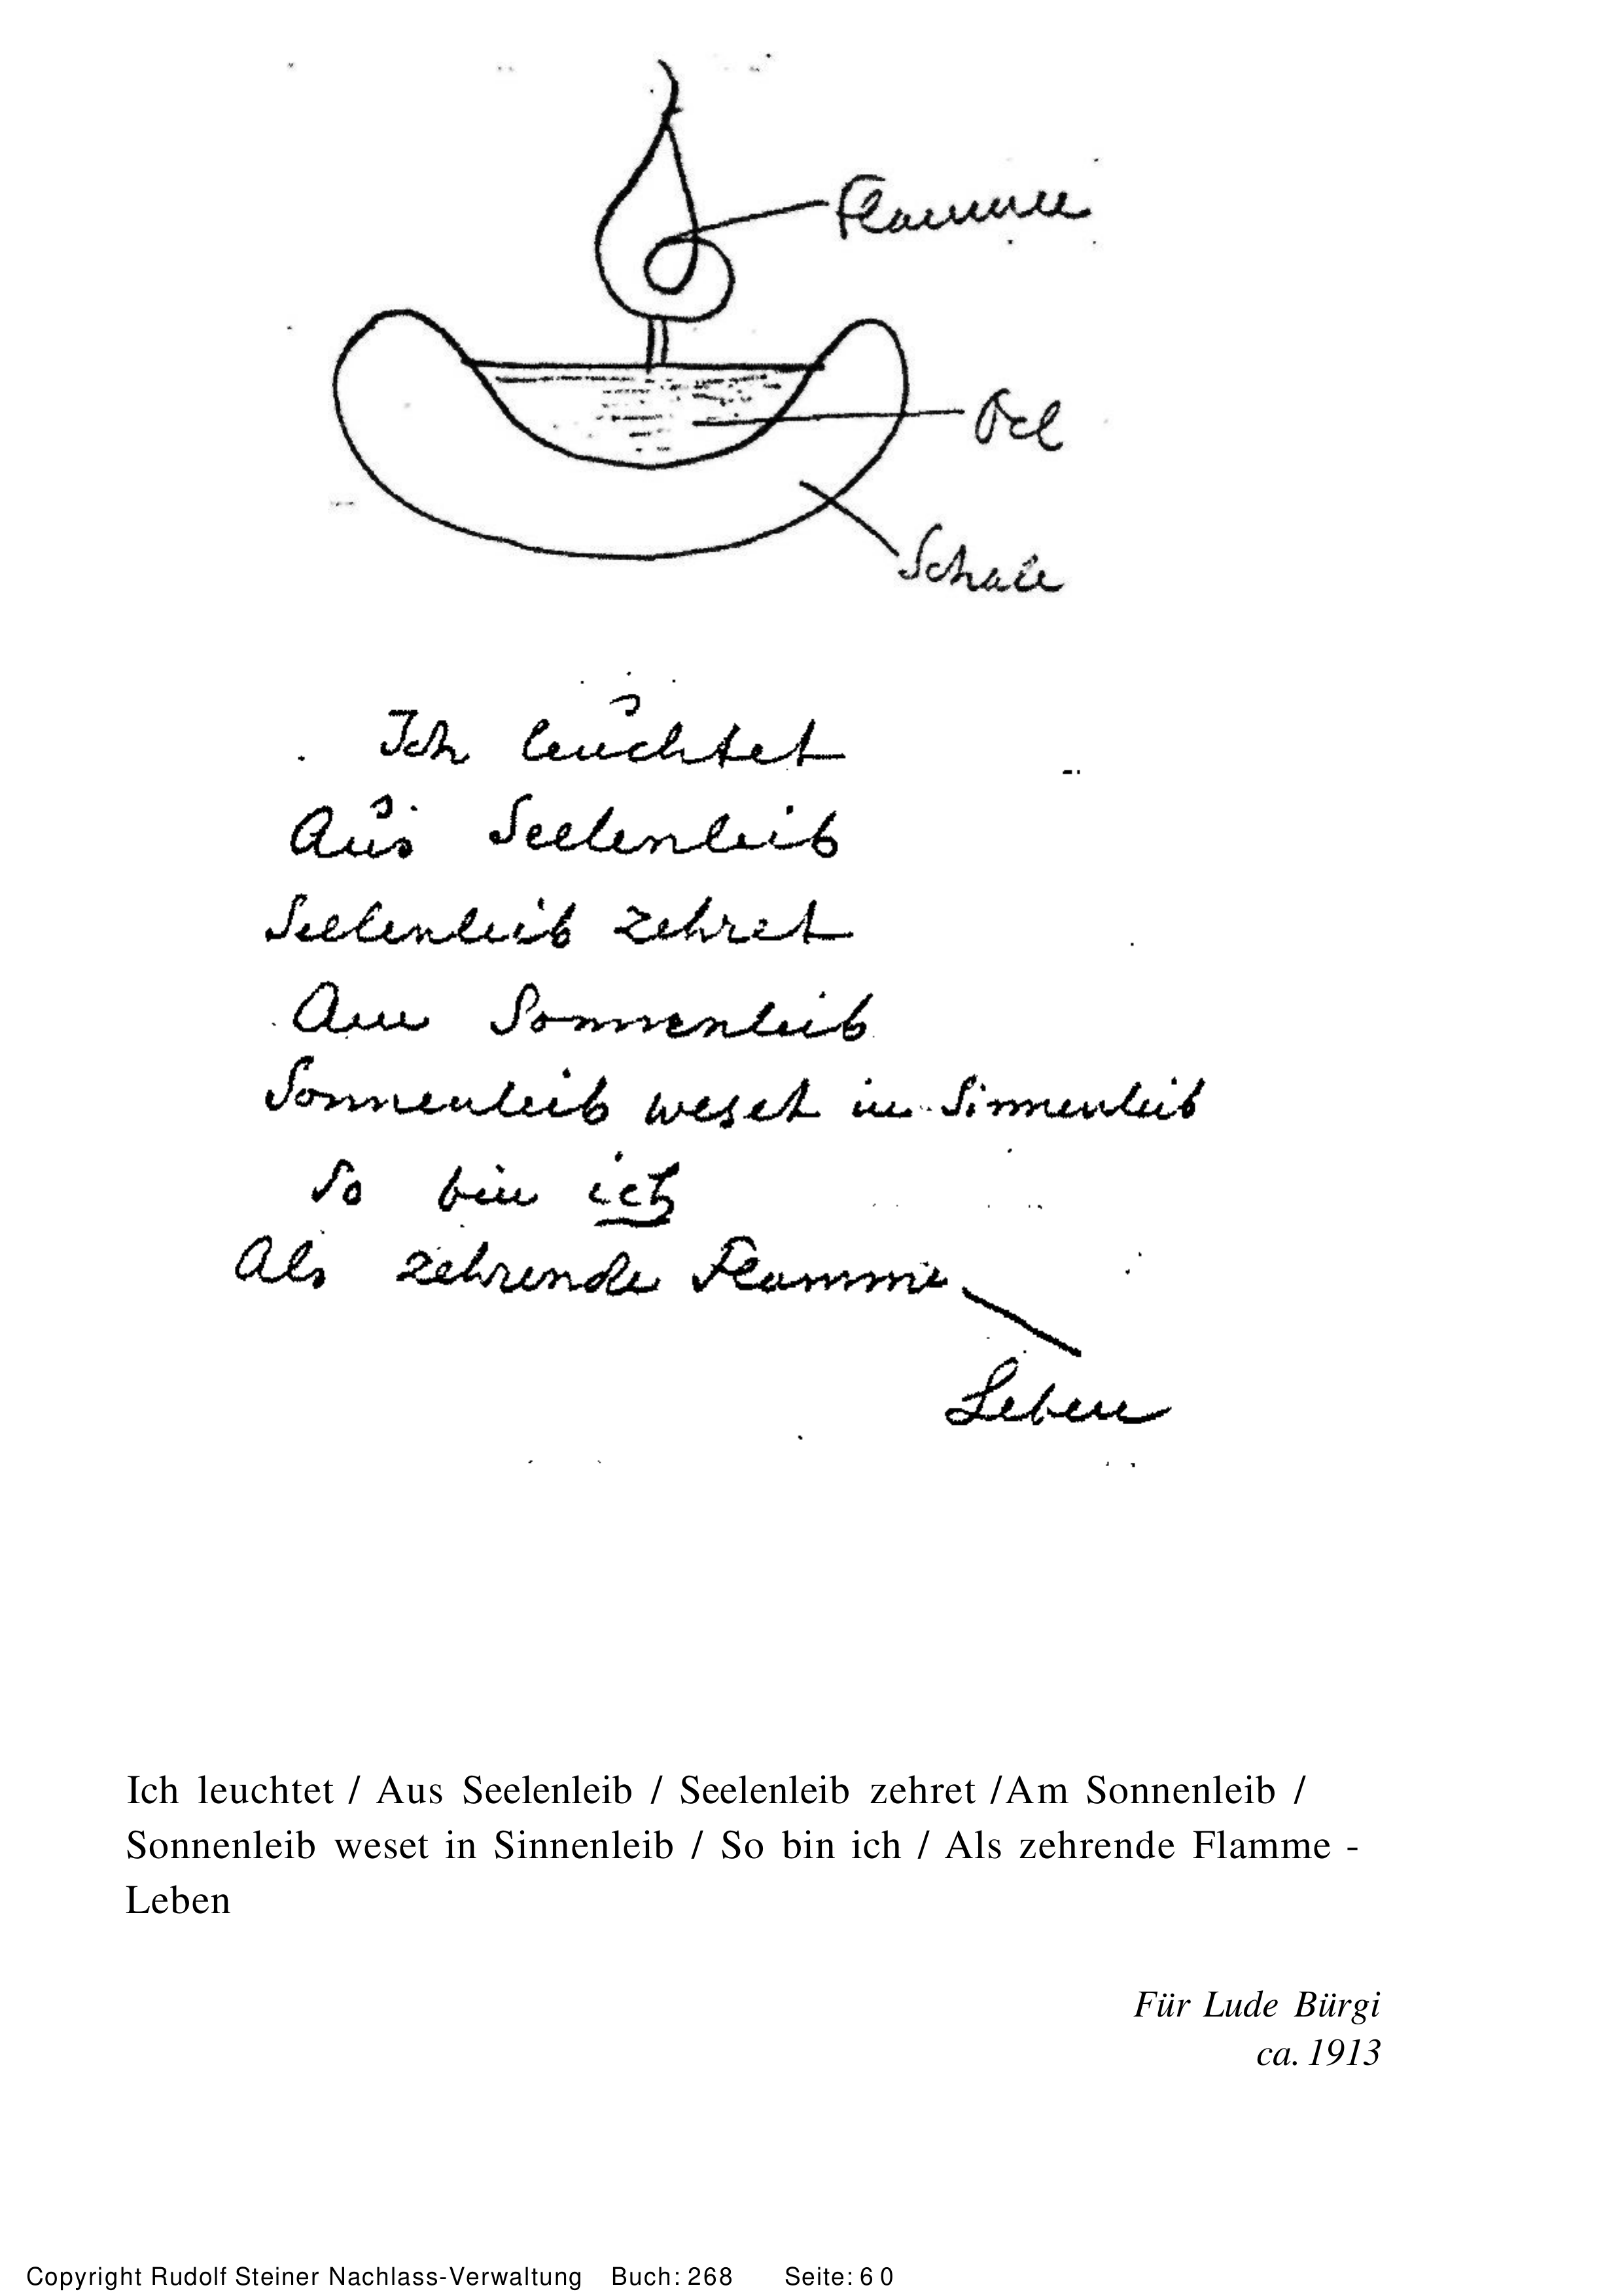 Flamme
Oel
Schale
Ich leuchtet
Aus Seelenleib
Seelenleib zehret
Am Sonnenleib
Sonnenleib weset in Sinnenleib
So bin ich
Als zehrende Flamme
Leben
Ich leuchtet / Aus Seelenleib / Seelenleib zehret /Am Sonnenleib /
Sonnenleib weset in Sinnenleib / So bin ich / Als zehrende Flamme -
Leben
Für Lude Bürgi
ca. 1913
Copyright Rudolf Steiner Nachlass-Verwaltung Buch: 268 Seite: 6 0